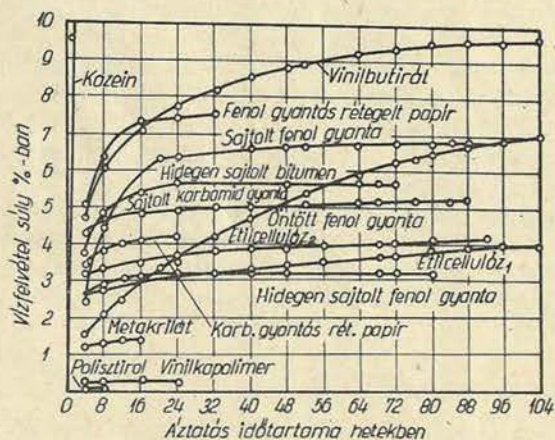 Vízfelvétel súly %-ban
10
9
8
7
6
5
4
3
2
1
Kazein
Vinilbutirát
Fenol gyantás rétegelt papír
Sajtolt fenol gyanta
Hidegen sajtolt bitumen
Sajtolt karbamid gyanta
Öntött fenol gyanta
Etilcellulóz2
Etilcellulóz1
Hidegen sajtolt fenol gyanta
Metakrilát
Karb. gyantás rét. papír
Polisztirol Vinilkapolimer
0 8 16 24 32 40 48 56 64 72 80 88 96 104
Áztatás időtartama hetekben